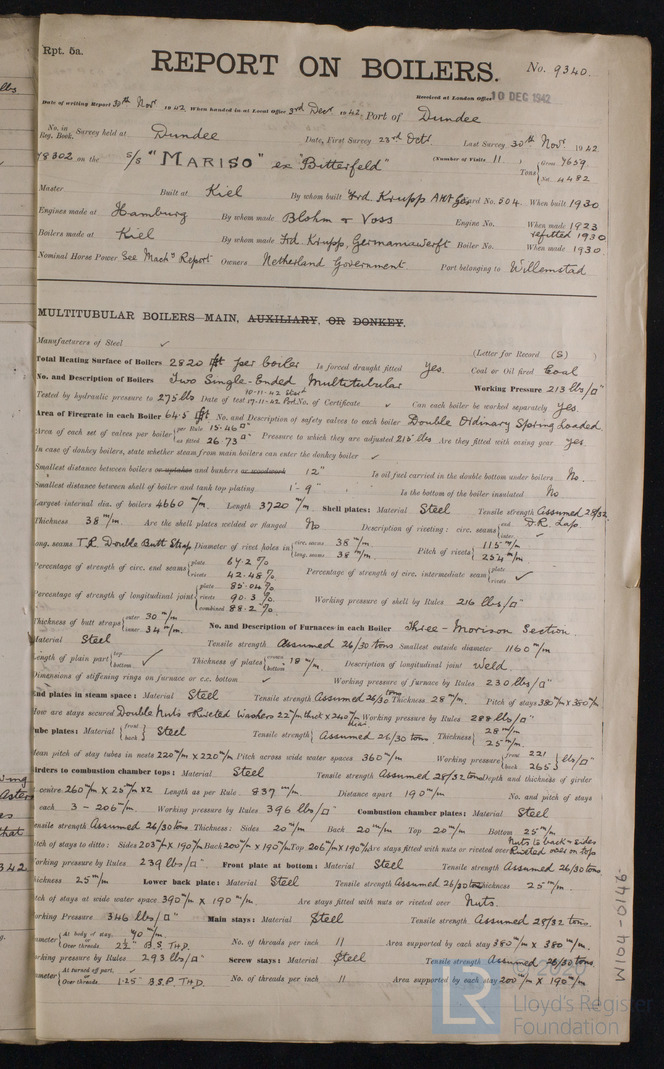 Rpt. 5a.
REPORT ON BOILERS.
No. 9340.
Received at London Office 10 DEC 1942
Date of writing Report 30th Novr 1942. When handed in at Local Office 3rd Decr 1942. Port of Dundee
No. in Reg. Book. Survey held at Dundee Date, First Survey 23rd Octr Last Survey 30th Novr 1942
78302 on the S/S "MARISO" ex "Bitterfeld" (Number of Visits 11 ) Tons { Gross 7659 Net 4482
Master Built at Kiel By whom built Frd. Krupp Akt Ges. Yard No. 504. When built 1930
Engines made at Hamburg By whom made Blohm & Voss Engine No. When made 1923 refitted 1930
Boilers made at Kiel By whom made Frd. Krupp, Germaniawerft Boiler No. When made 1930.
Nominal Horse Power See Machy Report Owners Netherland Government. Port belonging to Willemstad
MULTITUBULAR BOILERS—MAIN, AUXILIARY, OR DONKEY.
Manufacturers of Steel ✓ (Letter for Record (S) )
Total Heating Surface of Boilers 2820 ft per boiler Is forced draught fitted Yes. Coal or Oil fired Coal
No. and Description of Boilers Two Single-Ended Multitubular Working Pressure 213 lbs/□"
Tested by hydraulic pressure to 275 lbs Date of test 10-11-42 Start 17-11-42 Port No. of Certificate ✓ Can each boiler be worked separately Yes.
Area of Firegrate in each Boiler 64.5 ft No. and Description of safety valves to each boiler Double Ordinary Spring Loaded
Area of each set of valves per boiler { per Rule 15.46□" as fitted 26.73□" Pressure to which they are adjusted 215 lbs Are they fitted with easing gear yes
In case of donkey boilers, state whether steam from main boilers can enter the donkey boiler ✓
Smallest distance between boilers or uptakes and bunkers or woodwork 12" Is oil fuel carried in the double bottom under boilers No.
Smallest distance between shell of boiler and tank top plating 1'-9" Is the bottom of the boiler insulated No
Largest internal dia. of boilers 4660 m/m. Length 3720 m/m. Shell plates: Material Steel Tensile strength Assumed 28/32
Thickness 38 m/m. Are the shell plates welded or flanged No Description of riveting: circ. seams { end D.R. Lap. inter. ✓
long. seams T.R. Double Butt Strap Diameter of rivet holes in { circ. seams 38 m/m long. seams 38 m/m. Pitch of rivets { 115 m/m 254 m/m
Percentage of strength of circ. end seams { plate 67.2 % rivets 42.48 % Percentage of strength of circ. intermediate seam { plate rivets ✓
Percentage of strength of longitudinal joint { plate 85.04 % rivets 90.3 % combined 88.2 % Working pressure of shell by Rules 216 lbs/□"
Thickness of butt straps { outer 30 m/m inner 34 m/m. No. and Description of Furnaces in each Boiler Three - Morison Section.
Material Steel Tensile strength Assumed 26/30 tons Smallest outside diameter 1160 m/m
Length of plain part { top bottom ✓ Thickness of plates { crown bottom 18 m/m. Description of longitudinal joint Weld.
Dimensions of stiffening rings on furnace or c.c. bottom ✓ Working pressure of furnace by Rules 230 lbs/□"
End plates in steam space: Material Steel Tensile strength Assumed 26/30 tons Thickness 28 m/m. Pitch of stays 380 m/m x 380 m/m
How are stays secured Double Nuts & Riveted Washers 22 m/m thick x 240 m/m diam Working pressure by Rules 288 lbs/□"
Tube plates: Material { front back } Steel Tensile strength { Assumed 26/30 tons Thickness { 28 m/m 25 m/m.
Mean pitch of stay tubes in nests 220 m/m x 220 m/m. Pitch across wide water spaces 360 m/m Working pressure { front 221 back 265 } lbs/□"
Girders to combustion chamber tops: Material Steel Tensile strength Assumed 28/32 tons Depth and thickness of girder
at centre 260 m/m x 25 m/m x2 Length as per Rule 837 m/m. Distance apart 190 m/m No. and pitch of stays
in each 3 - 206 m/m. Working pressure by Rules 396 lbs/□" Combustion chamber plates: Material Steel
Tensile strength Assumed 26/30 tons Thickness: Sides 20 m/m Back 20 m/m Top 20 m/m Bottom 25 m/m
Pitch of stays to ditto: Sides 203 m/m x 190 m/m Back 200 m/m x 190 m/m Top 206 m/m x 190 m/m Are stays fitted with nuts or riveted over Nuts to back & sides Riveted over on top
Working pressure by Rules 239 lbs/□" Front plate at bottom: Material Steel Tensile strength Assumed 26/30 tons
Thickness 25 m/m. Lower back plate: Material Steel Tensile strength Assumed 26/30 tons Thickness 25 m/m.
Pitch of stays at wide water space 390 m/m x 190 m/m. Are stays fitted with nuts or riveted over Nuts.
Working Pressure 346 lbs/□" Main stays: Material Steel Tensile strength Assumed 28/32 tons.
Diameter { At body of stay, 70 m/m. or Over threads. 2½" B.S. THD. No. of threads per inch 11 Area supported by each stay 380 m/m x 380 m/m.
Working pressure by Rules 293 lbs/□" Screw stays: Material Steel Tensile strength Assumed 26/30 tons
Diameter { At turned off part, ✓ or Over threads. 1.25" B.S.P. THD. No. of threads per inch 11 Area supported by each stay 200 m/m x 190 m/m
W104-0146
© 2020
LR
Lloyd's Register
Foundation